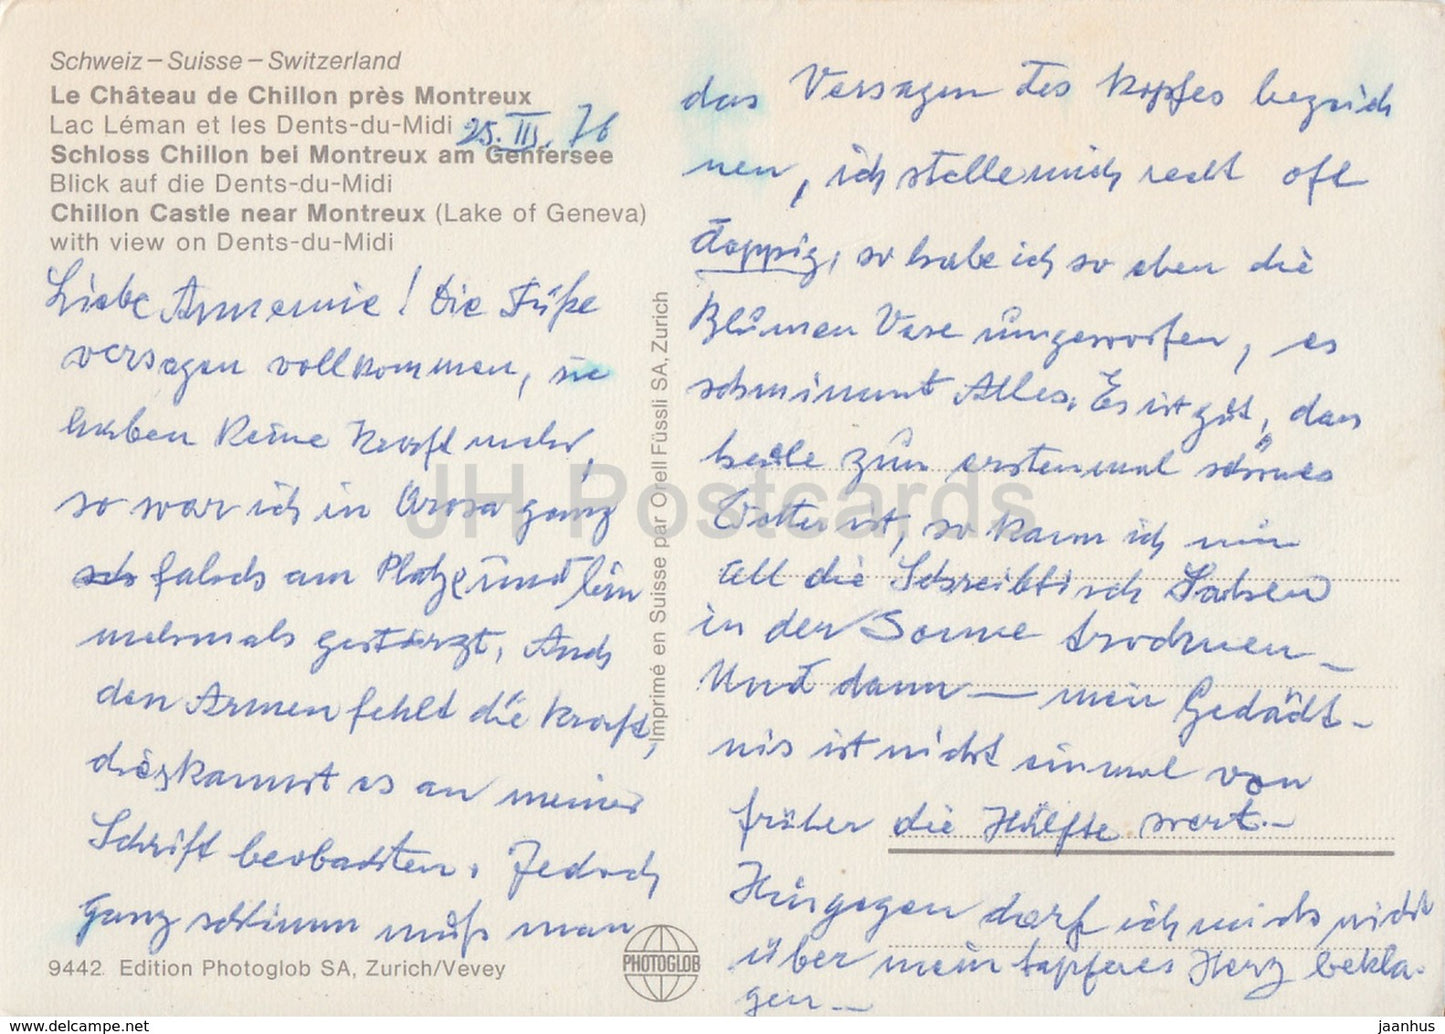 Schweiz – Suisse – Switzerland
Le Château de Chillon près Montreux
Lac Léman et les Dents-du-Midi
25. III. 76
Schloss Chillon bei Montreux am Genfersee
Blick auf die Dents-du-Midi
Chillon Castle near Montreux (Lake of Geneva)
with view on Dents-du-Midi
Liebe Annemie! Die Füße
versagen vollkommen, sie
haben keine Kraft mehr,
so war ich in Arosa ganz
falsch am Platze und bin
mehrmals gestürzt. Auch
den Armen fehlt die Kraft,
dies kannst es an meiner
Schrift beobachten. Jedoch
ganz schlimm muß man
9442 Edition Photoglob SA, Zurich/Vevey
PHOTOGLOB
Imprimé en Suisse par Orell Füssli SA, Zurich
das Versagen des Kopfes bezeich
nen, ich stelle mich recht oft
doppig, so habe ich so eben die
Blumen Vase umgeworfen, es
schwimmt Alles. Es ist gut, das
heute zum erstenmal schönes
Wetter ist, so kann ich nun
all die Schreibtisch Sachen
in der Sonne trocknen –
Und dann – mein Gedächt-
nis ist nicht einmal von
früher die Hälfte wert. –
Hingegen darf ich mich nicht
über mein tapferes Herz bekla-
gen –
JH Postcards
www.delcampe.net
jaanhus